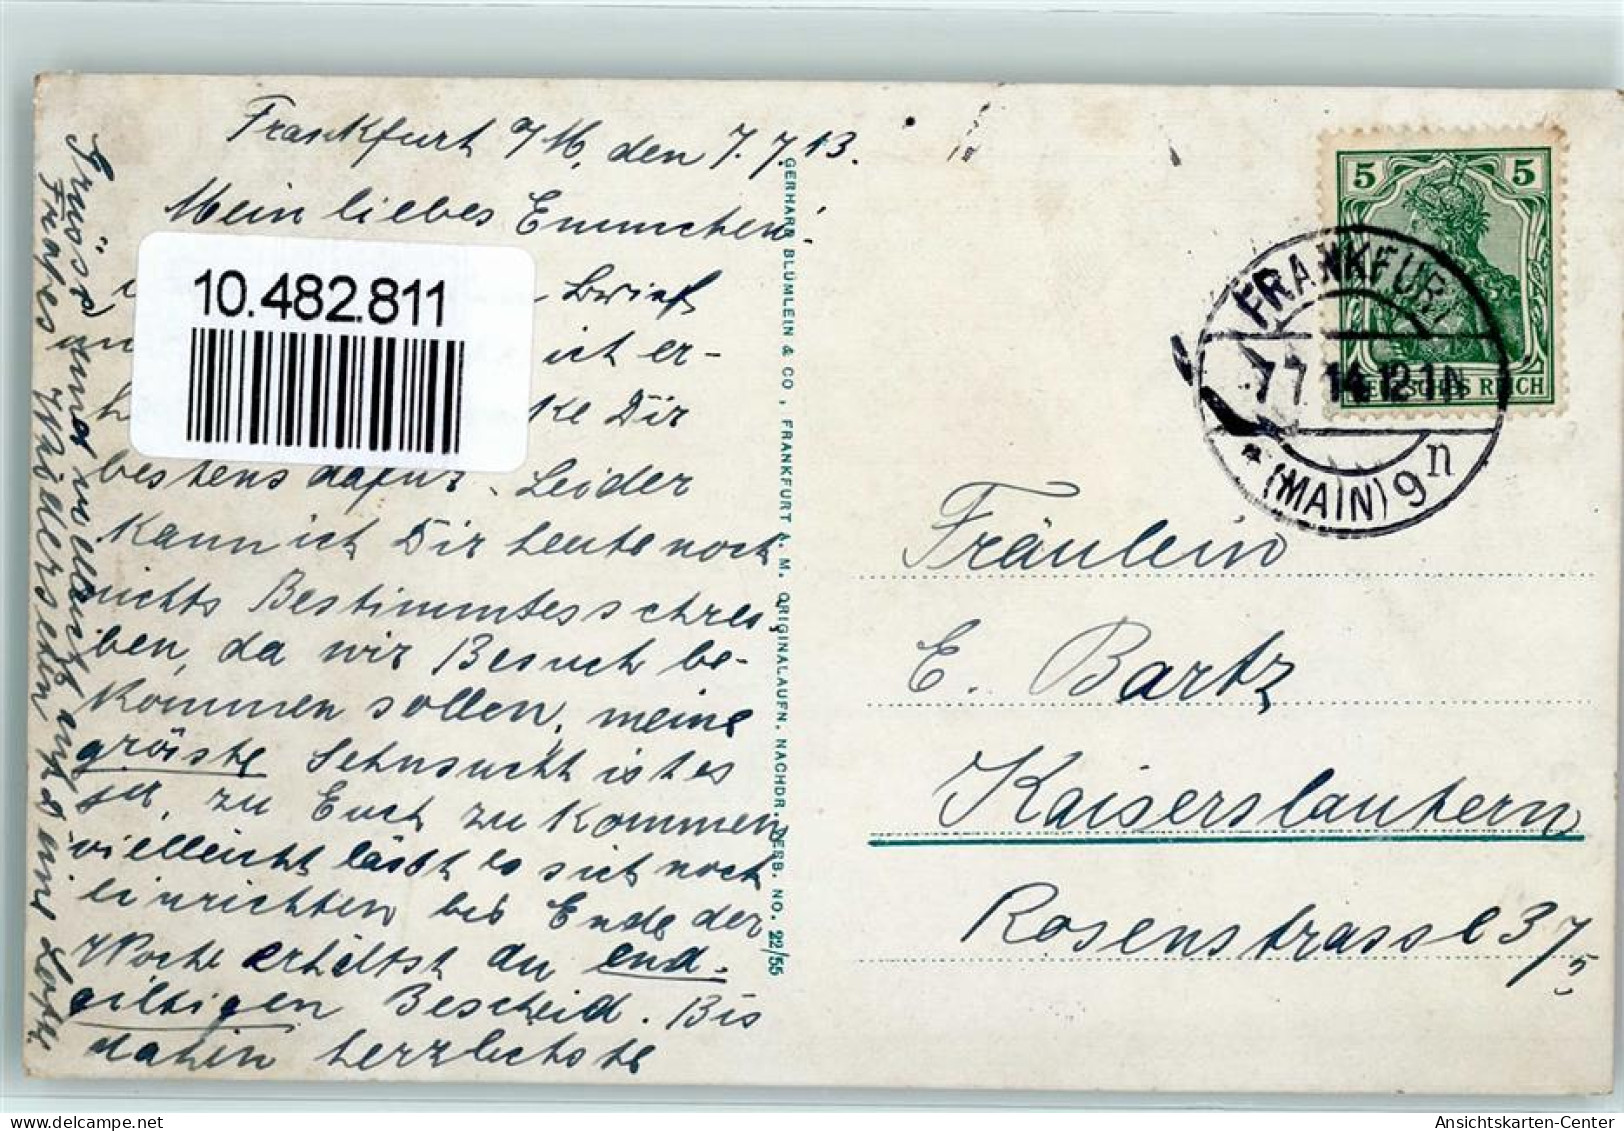 Frankfurt a/M, den 7.7.13.
Mein liebes Emmchen!
Brief
ich er-
ke Dir
bestens dafür. Leider
kann ich Dir heute noch
nichts Bestimmtes schrei
ben, da wir Besuch be-
kommen sollen, meine
gröste Sehnsucht ist es
ja, zu Euch zu kommen
vielleicht lässt es sich noch
einrichten bis Ende der
Woche erhältst du end-
giltigen Bescheid. Bis
dahin herzlichste
Grüsse unser vielleicht auf ein
Frohes Wiedersehen Deine Lotte.
10.482.811
GERHARD BLÜMLEIN & CO., FRANKFURT A. M. ORIGINALAUFN. NACHDR. VERB. NO. 22/55
5 5
DEUTSCHES REICH
FRANKFURT
7.7.14.12-1N
* (MAIN) 9n
Fräulein
E. Bartz
Kaiserslautern
Rosenstrasse 37/5
Ansichtskarten-Center